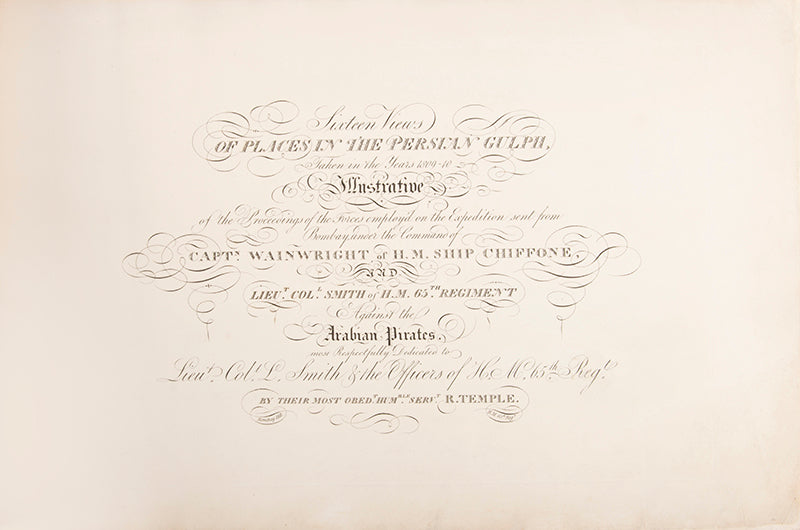 Sixteen Views
OF PLACES IN THE PERSIAN GULPH,
Taken in the Years 1809-10
Illustrative
of the Proceedings of the Forces employ'd on the Expedition sent from
Bombay, under the Command of
CAPTN. WAINWRIGHT of H.M. SHIP CHIFFONE,
AND
LIEUT. COLL. SMITH of H.M. 65TH. REGIMENT
Against the
Arabian Pirates,
most Respectfully Dedicated to
Lieut. Coll. L. Smith & the Officers of H. M. 65th. Regt.
BY THEIR MOST OBEDT. HUMBLE. SERVT. R. TEMPLE.